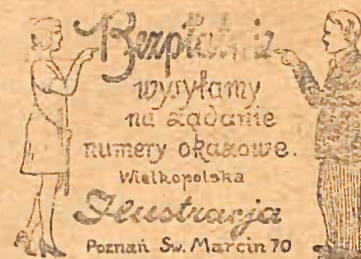 Bezpłatnie
wysyłamy
na żądanie
numery okazowe.
Wielkopolska
Ilustracja
Poznań Św. Marcin 70